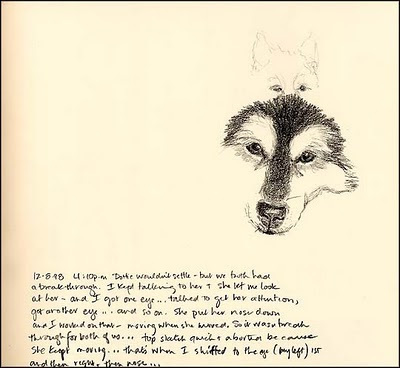 12-8-98 4:10 p.m Dottie wouldn't settle - but we both had
a breakthrough. I kept talking to her + she let me look
at her - and I got one eye ... talked to get her attention,
got another eye ... and so on. She put her nose down
and I worked on that - moving when she moved. So it was breath
through for both of us ... top sketch quiet + aborted because
She kept moving ... that's when I shifted to the eye (my left) 1st
and then right, then nose ...